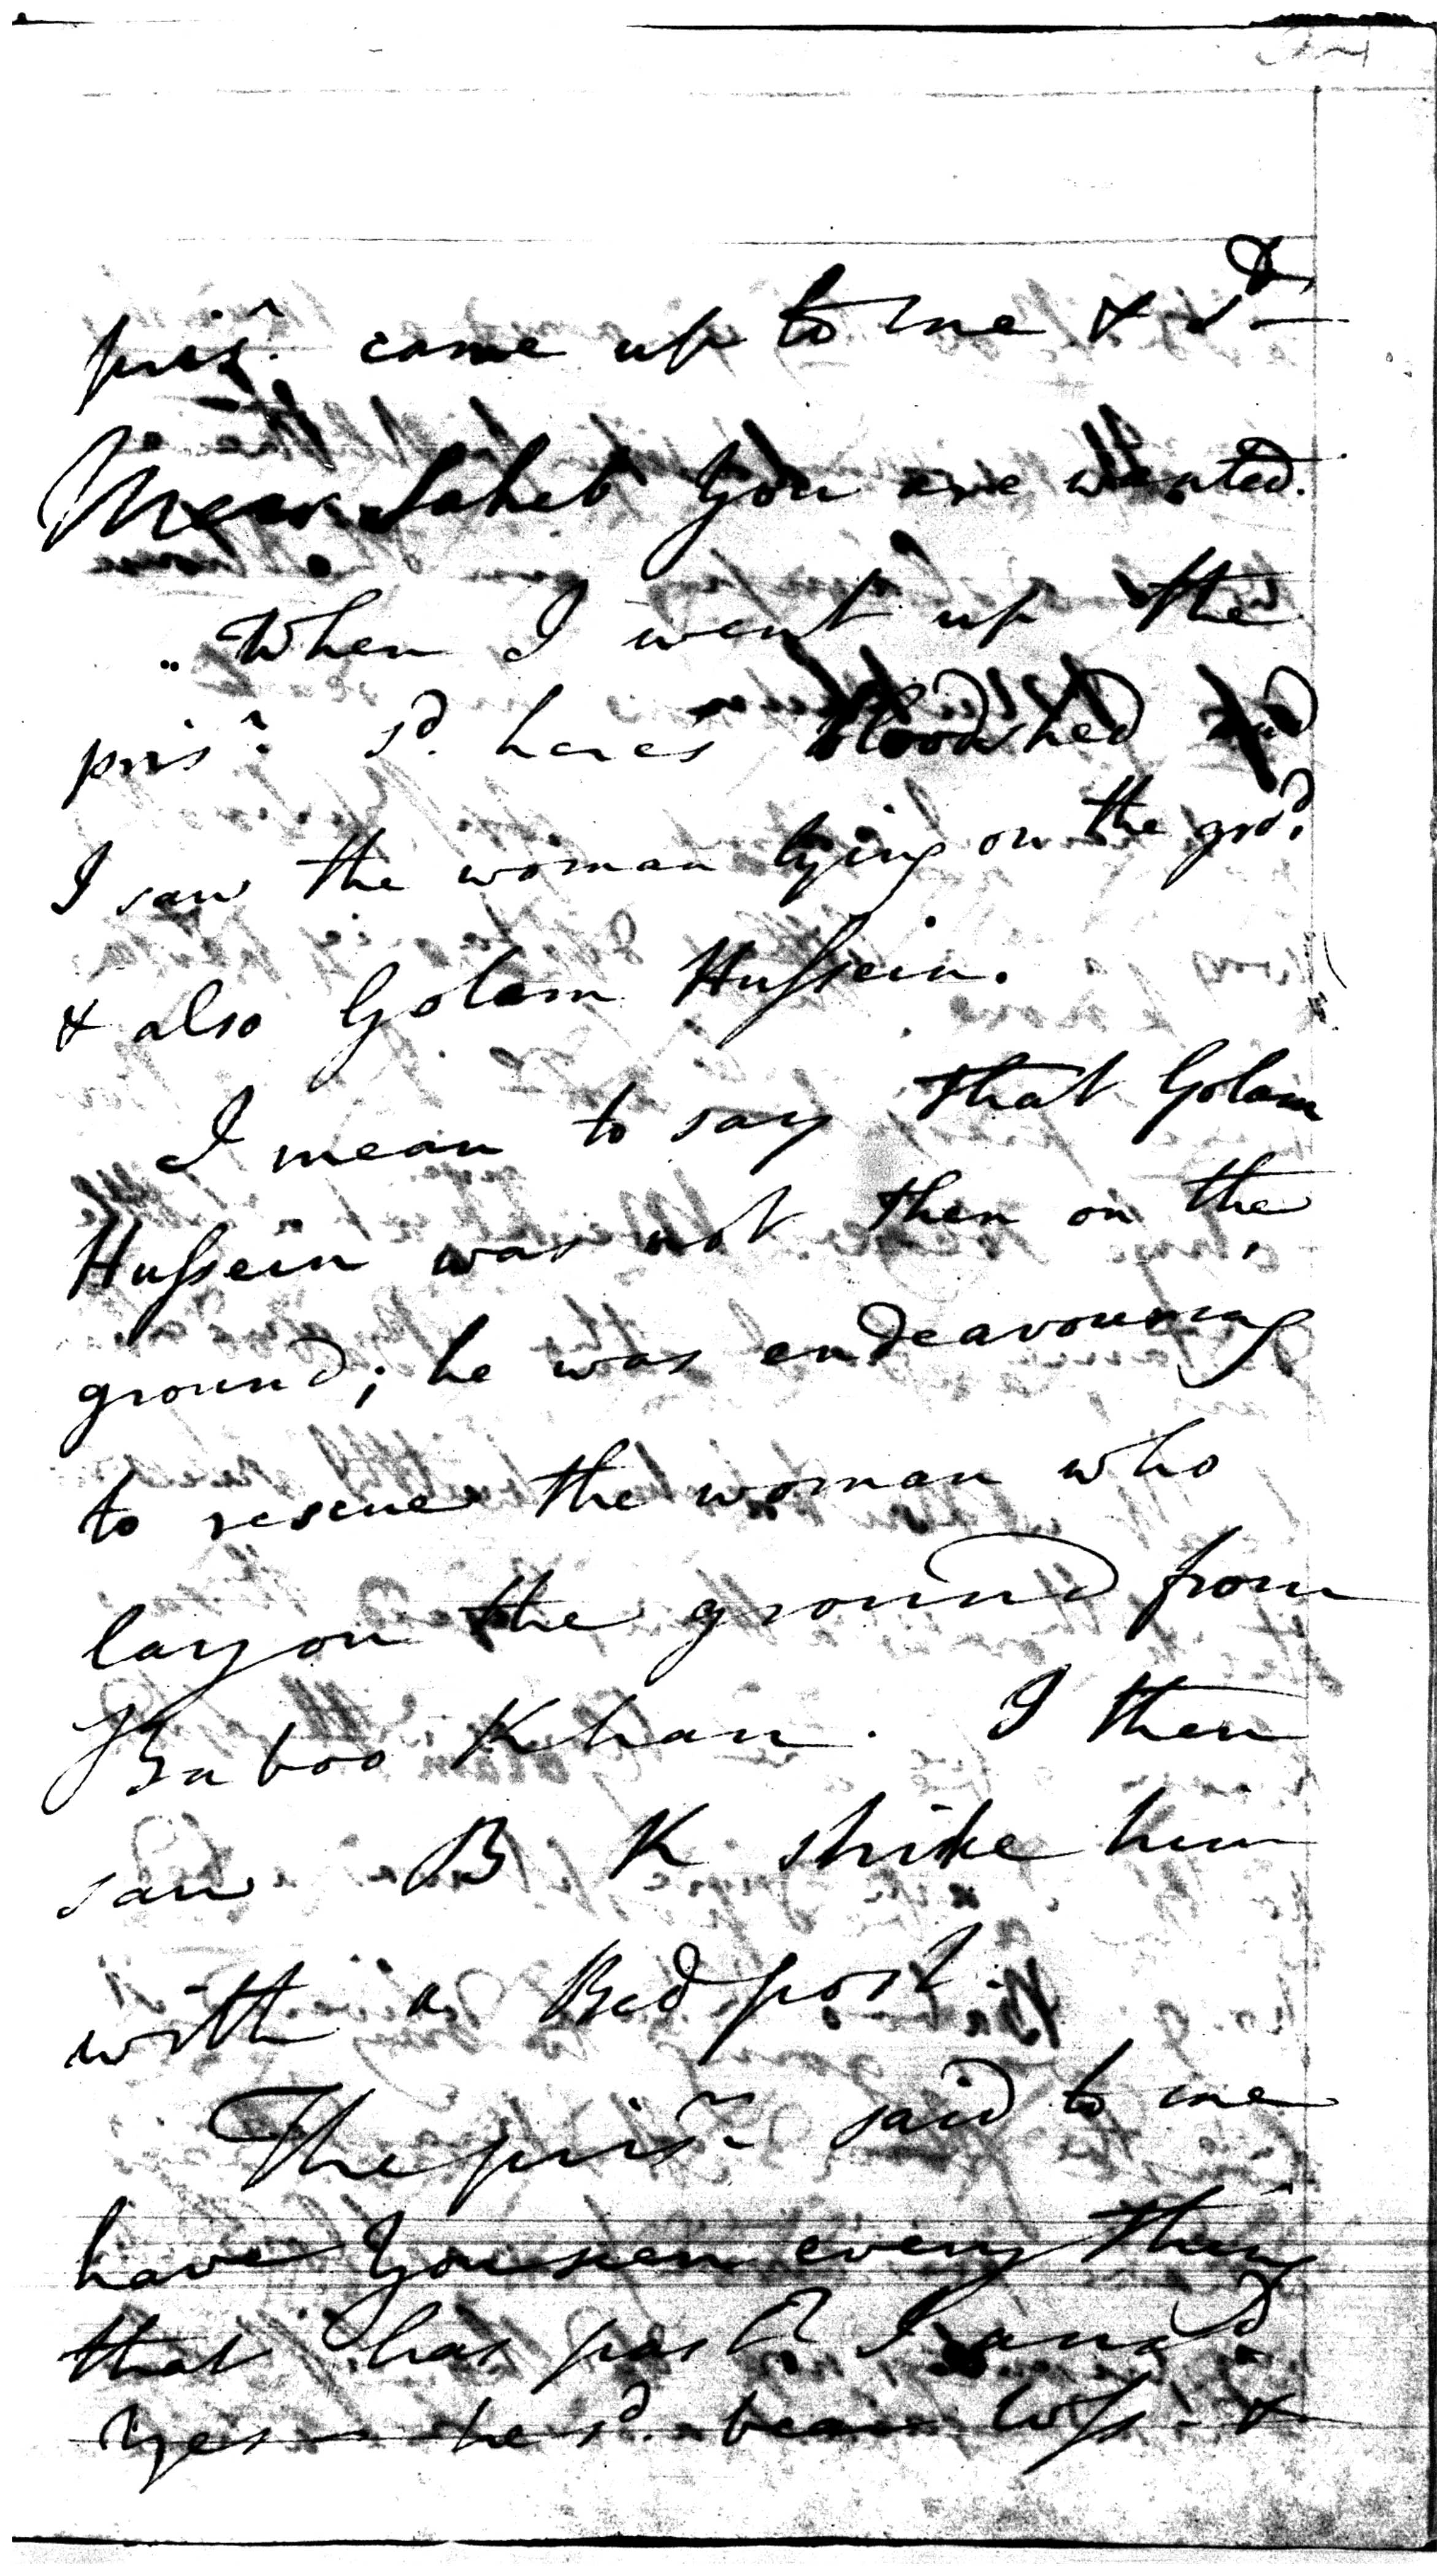 prisr. came up to me & sd
Meer Saheb you are wanted.
When I went up the
prisr. sd. heres bloodshed and
I saw the woman lying on the grod.
& also Golam Hussein.
I mean to say that Golam
Hussein was not then on the
ground; he was endeavouring
to rescue the woman who
lay on the ground from
Baboo Khan. I then
saw B K strike him
with a Bed post.
The prisr said to me
have you seen every thing
that has past? I ansd
Yes he sd. bear Wss. &